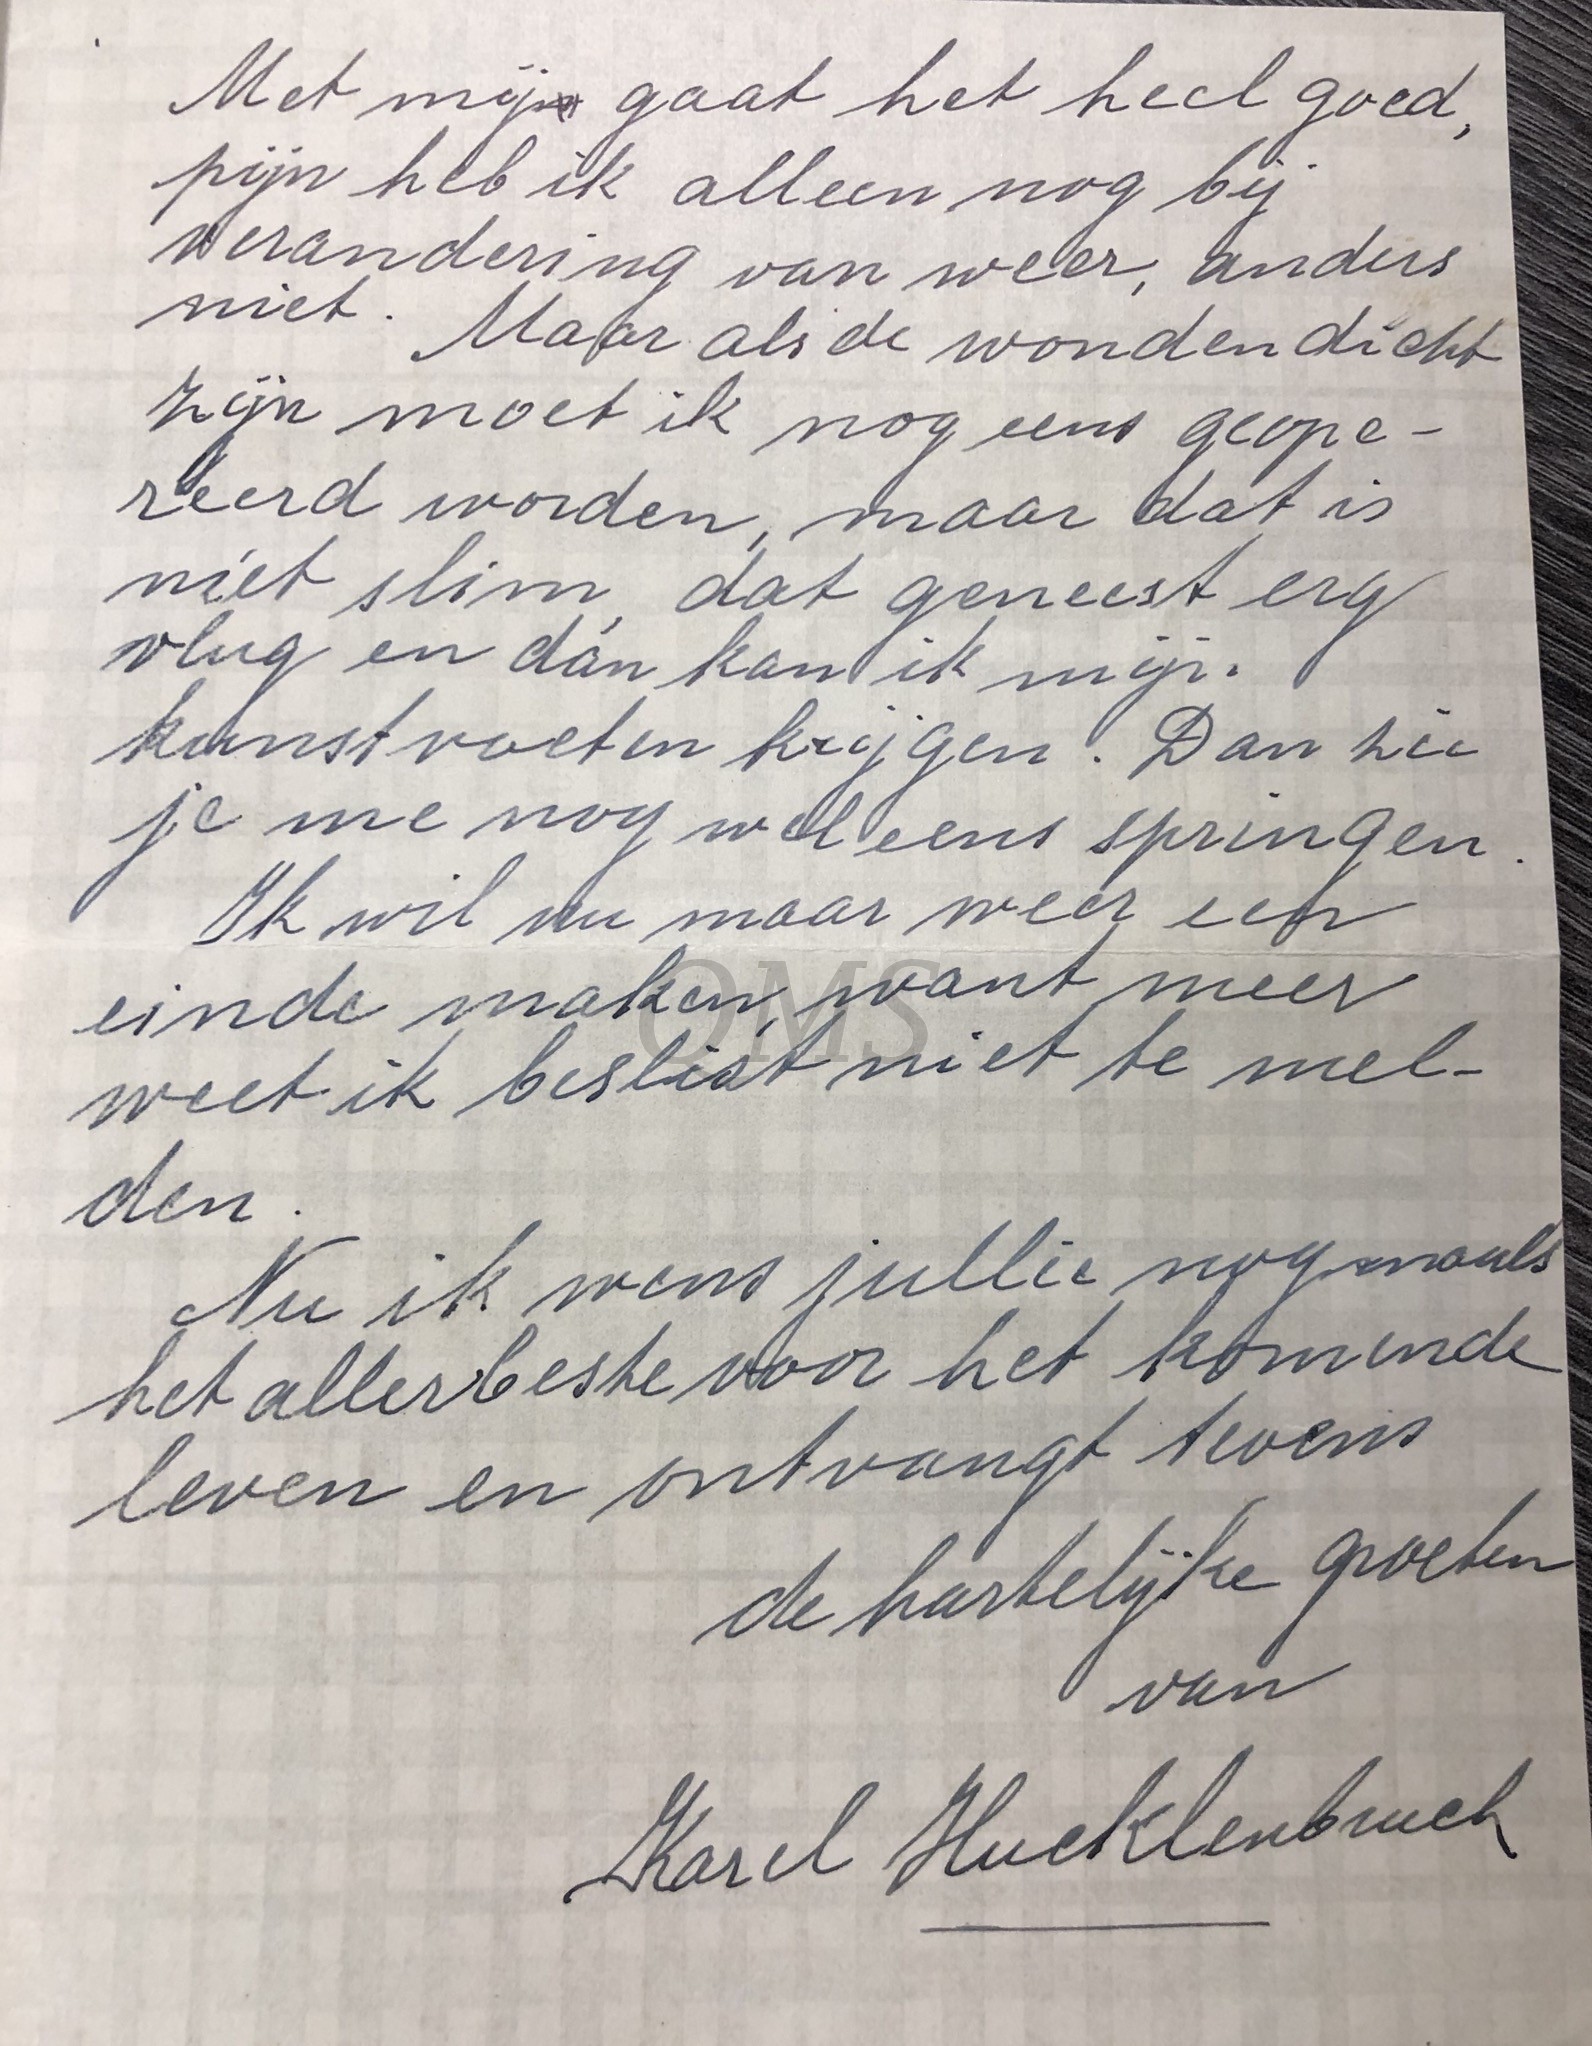 Met mij gaat het heel goed,
pijn heb ik alleen nog bij
verandering van weer, anders
niet. Maar als de wonden dicht
zijn moet ik nog eens geope-
reerd worden, maar dat is
niet slim, dat geneest erg
vlug en dán kan ik mijn
kunstvoeten krijgen. Dan zie
je me nog wel eens springen.
Ik wil nu maar weer een
einde maken, want meer
OMS
weet ik beslist niet te mel-
den.
Nu ik wens jullie nogmaals
het allerbeste voor het komende
leven en ontvangt tevens
de hartelijke groeten
van
Karel Hucklenbruch